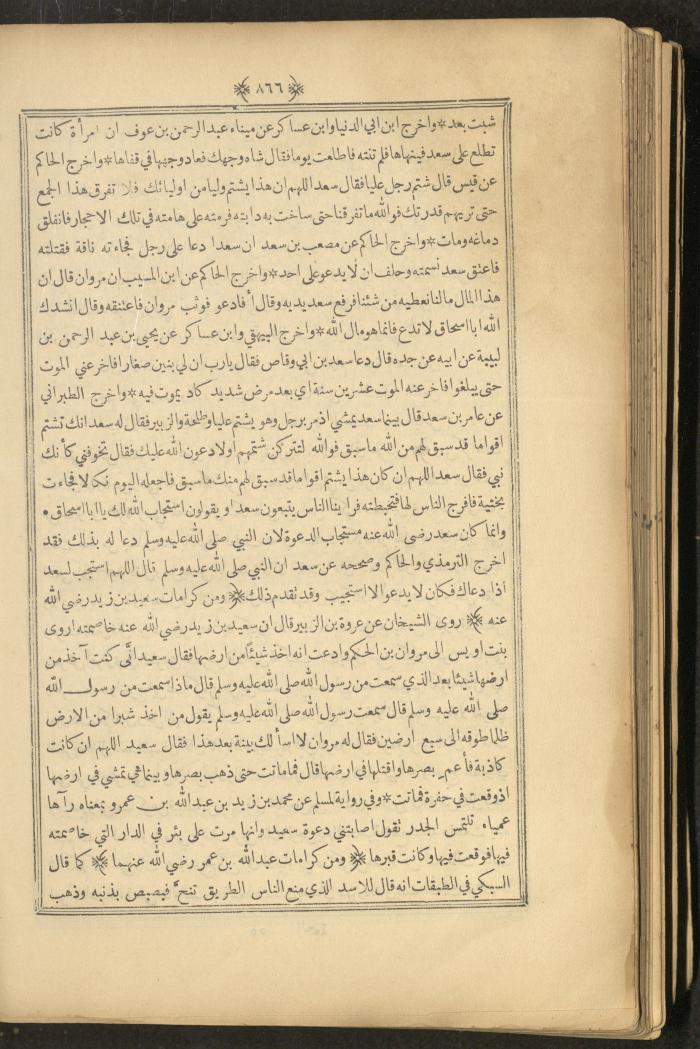 ٨٦٦
شبت بعد * واخرج ابن ابي الدنيا وابن عساكر عن ميناء عبد الرحمن بن عوف ان امرأة كانت
تطلع على سعد فينهاها فلم تنته فاطلعت يوما فقال شاه وجهك فعاد وجهها في قفاها * واخرج الحاكم
عن قيس قال شتم رجل عليا فقال سعد اللهم ان هذا يشتم وليا من اوليائك فلا تفرق هذا الجمع
حتى تريهم قدرتك فوالله ما تفرقنا حتى ساخت به دابته فرمته على هامته في تلك الاحجار فانفلق
دماغه ومات * واخرج الحاكم عن مصعب بن سعد ان سعدا دعا على رجل فجاءته ناقة فقتلته
فاعتق سعد نسمته وحلف ان لا يدعو على احد * واخرج الحاكم عن ابن المسيب ان مروان قال ان
هذا المال مالنا نعطيه من شئنا فرفع سعد يديه وقال أ فادعو فوثب مروان فاعتنقه وقال انشدك
الله ابا اسحاق لا تدع فانما هو مال الله * واخرج البيهقي وابن عساكر عن يحيى بن عبد الرحمن بن
لبيبة عن ابيه عن جده قال دعا سعد بن ابي وقاص فقال يارب ان لي بنين صغارا فاخر عني الموت
حتى يبلغوا فاخر عنه الموت عشرين سنة اي بعد مرض شديد كاد يموت فيه * واخرج الطبراني
عن عامر بن سعد قال بينما سعد يمشي اذ مر برجل وهو يشتم عليا وطلحة والزبير فقال له سعد انك تشتم
اقواما قد سبق لهم من الله ما سبق فوالله لتتركن شتمهم او لادعون الله عليك فقال تخوفني كأنك
نبي فقال سعد اللهم ان كان هذا يشتم اقواما قد سبق لهم منك ما سبق فاجعله اليوم نكالا فجاءت
بختية فافرج الناس لها فتخبطته فرأينا الناس يتبعون سعدا ويقولون استجاب الله لك يا ابا اسحاق •
وانما كان سعد رضى الله عنه مستجاب الدعوة لان النبي صلى الله عليه وسلم دعا له بذلك فقد
اخرج الترمذي والحاكم وصححه عن سعد ان النبي صلى الله عليه وسلم قال اللهم استجب لسعد
اذا دعاك فكان لا يدعو الا استجيب وقد تقدم ذلك ﴿ ومن كرامات سعيد بن زيد رضي الله
عنه ﴾ روى الشيخان عن عروة بن الزبير قال ان سعيد بن زيد رضي الله عنه خاصمته اروى
بنت اويس الى مروان بن الحكم وادعت انه اخذ شيئا من ارضها فقال سعيد انى كنت آخذ من
ارضها شيئا بعد الذي سمعت من رسول الله صلى الله عليه وسلم قال ماذا سمعت من رسول الله
صلى الله عليه وسلم قال سمعت رسول الله صلى الله عليه وسلم يقول من اخذ شبرا من الارض
ظلما طوقه الى سبع ارضين فقال له مروان لا اسألك بينة بعد هذا فقال سعيد اللهم ان كانت
كاذبة فأعم بصرها واقتلها في ارضها قال فما ماتت حتى ذهب بصرها وبينما هي تمشي في ارضها
اذ وقعت في حفرة فماتت * وفي رواية لمسلم عن محمد بن زيد بن عبد الله بن عمرو بمعناه رآها
عمياء تلتمس الجدر تقول اصابتني دعوة سعيد وانها مرت على بئر في الدار التي خاصمته
فيها فوقعت فيها وكانت قبرها ﴿ ومن كرامات عبد الله بن عمر رضي الله عنهما ﴾ كما قال
السبكي في الطبقات انه قال للاسد الذي منع الناس الطريق تنح فبصبص بذنبه وذهب